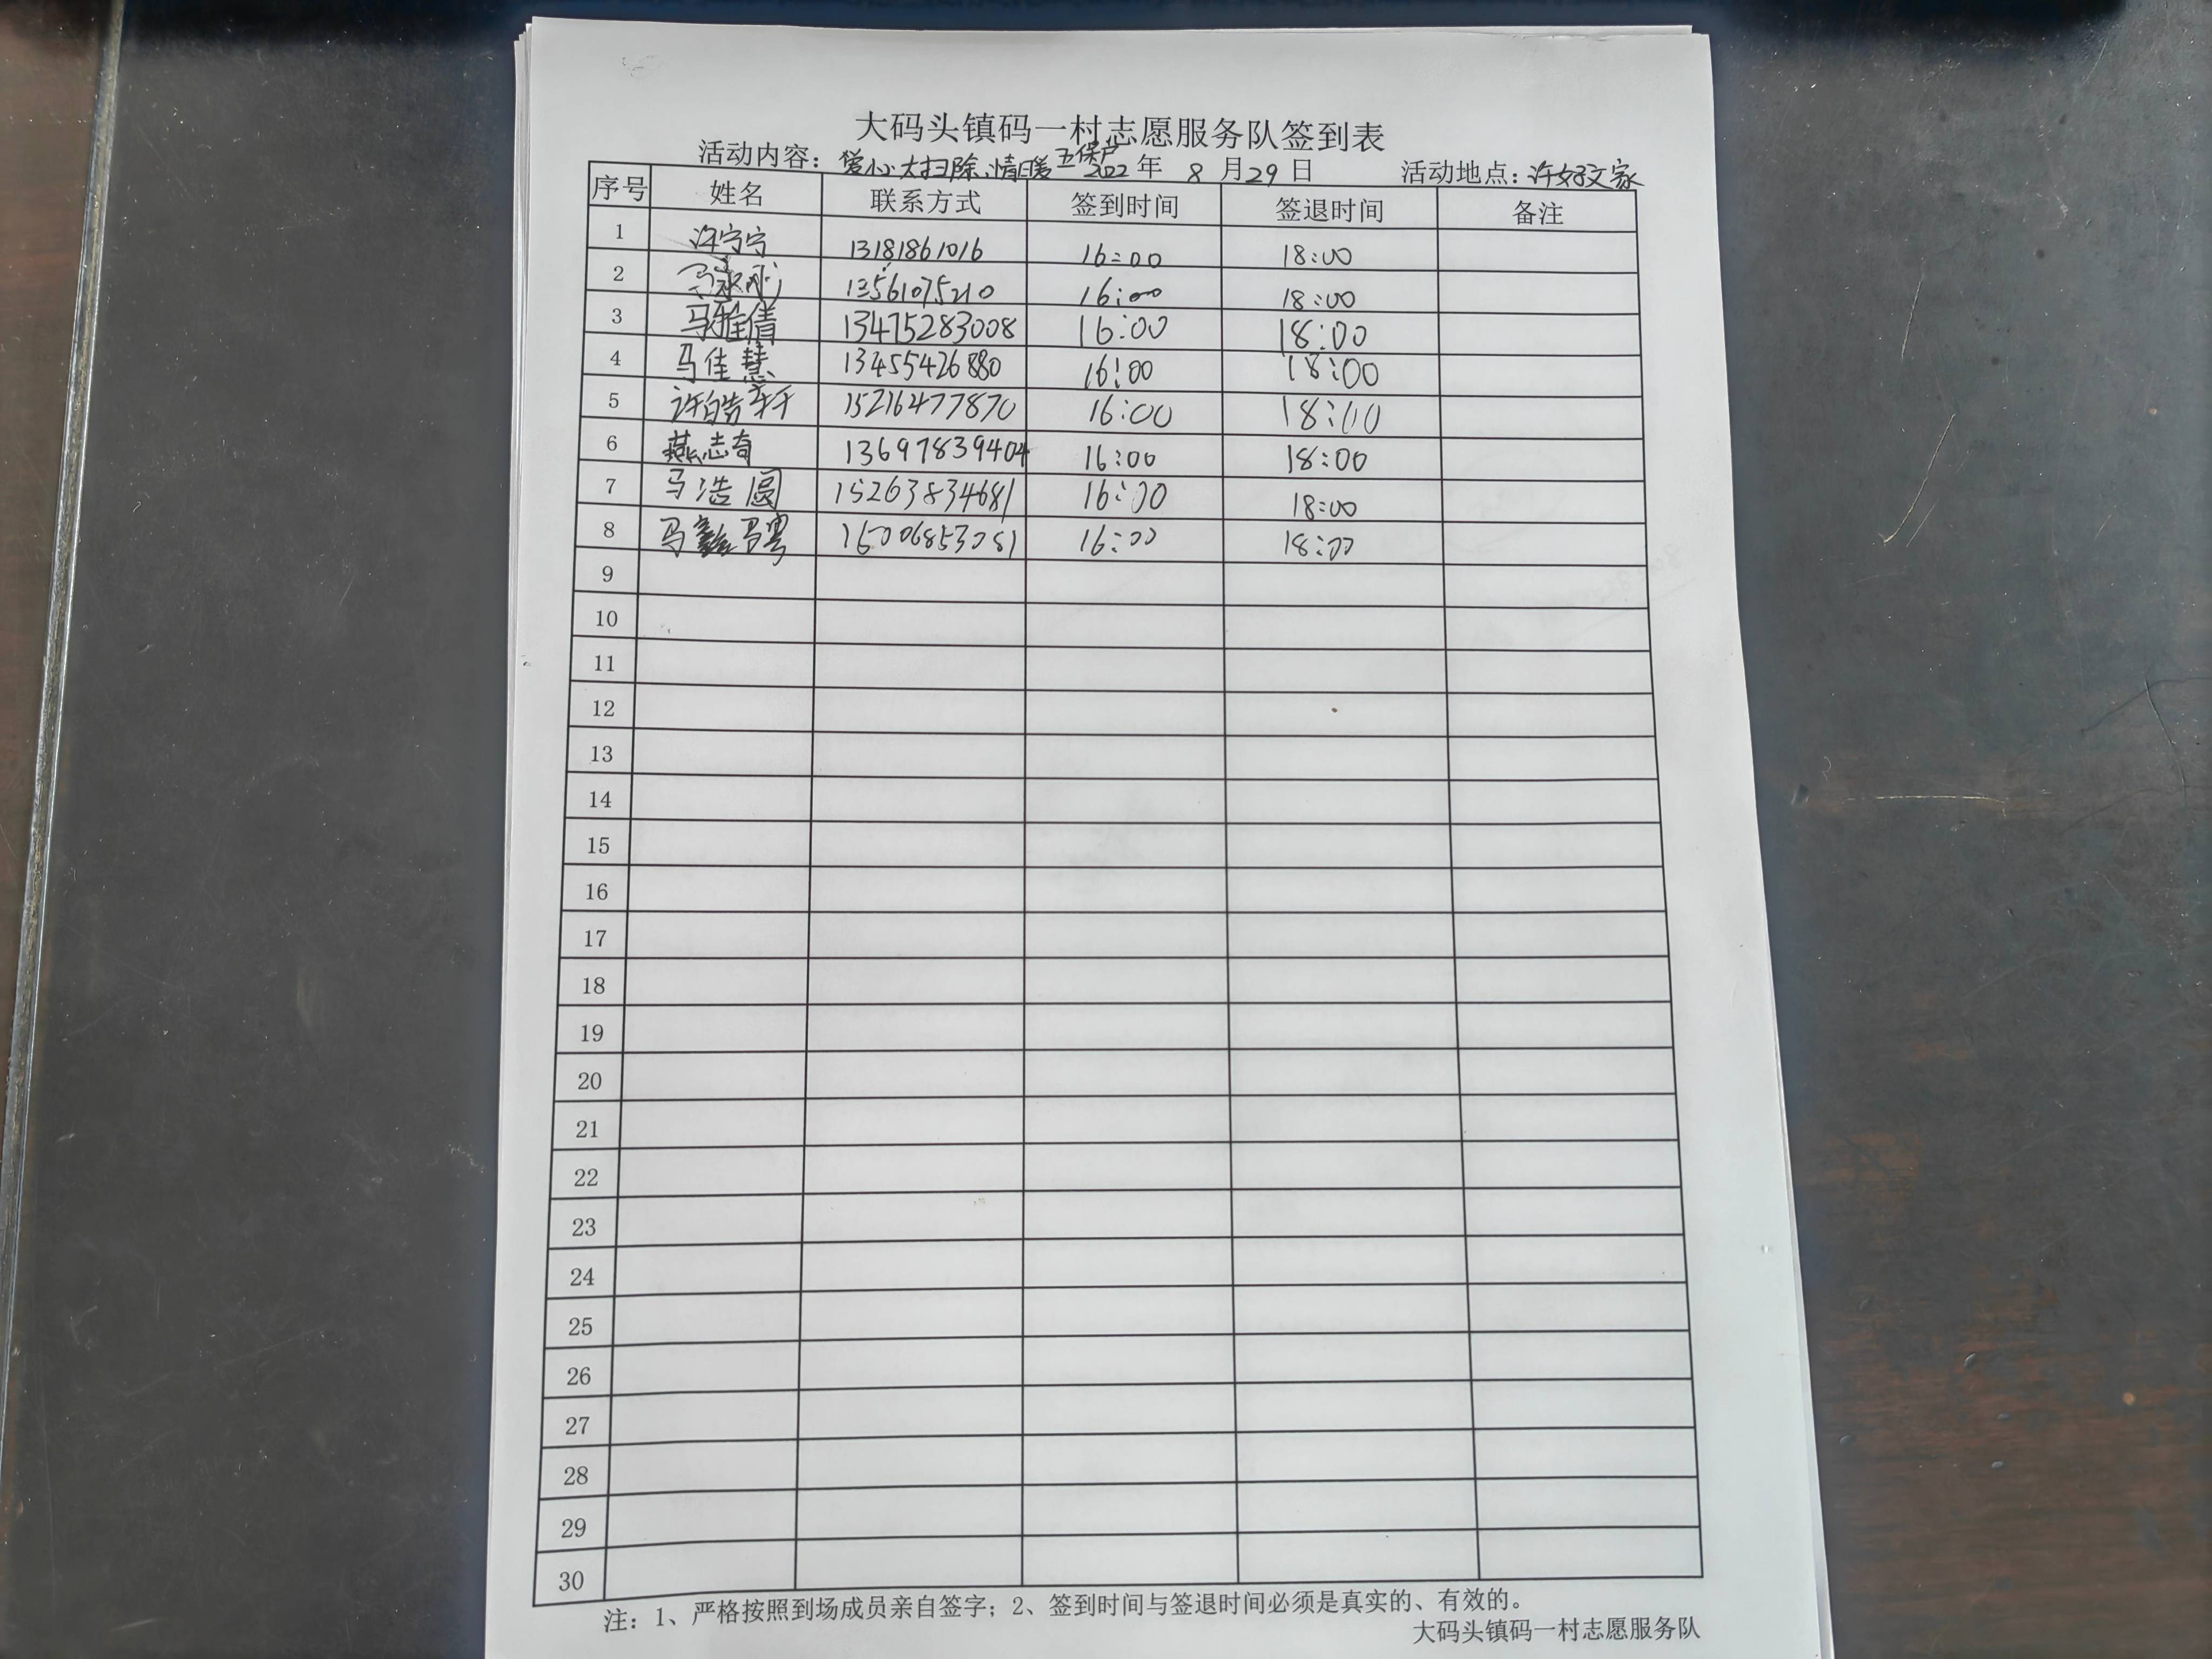 大码头镇码一村志愿服务队签到表
活动内容：爱心大扫除、情暖五保户 2022年 8月29日 活动地点：许好文家
序号 姓名 联系方式 签到时间 签退时间 备注
1 许宁宁 13181861016 16:00 18:00
2 马永刚 13561075210 16:00 18:00
3 马雅倩 13475283008 16:00 18:00
4 马佳慧 13455426880 16:00 18:00
5 许皓轩 15216477870 16:00 18:00
6 燕志奇 13697839404 16:00 18:00
7 马浩圆 15263834681 16:00 18:00
8 马鑫骉 16006853081 16:00 18:00
9
10
11
12
13
14
15
16
17
18
19
20
21
22
23
24
25
26
27
28
29
30
注：1、严格按照到场成员亲自签字；2、签到时间与签退时间必须是真实的、有效的。
大码头镇码一村志愿服务队